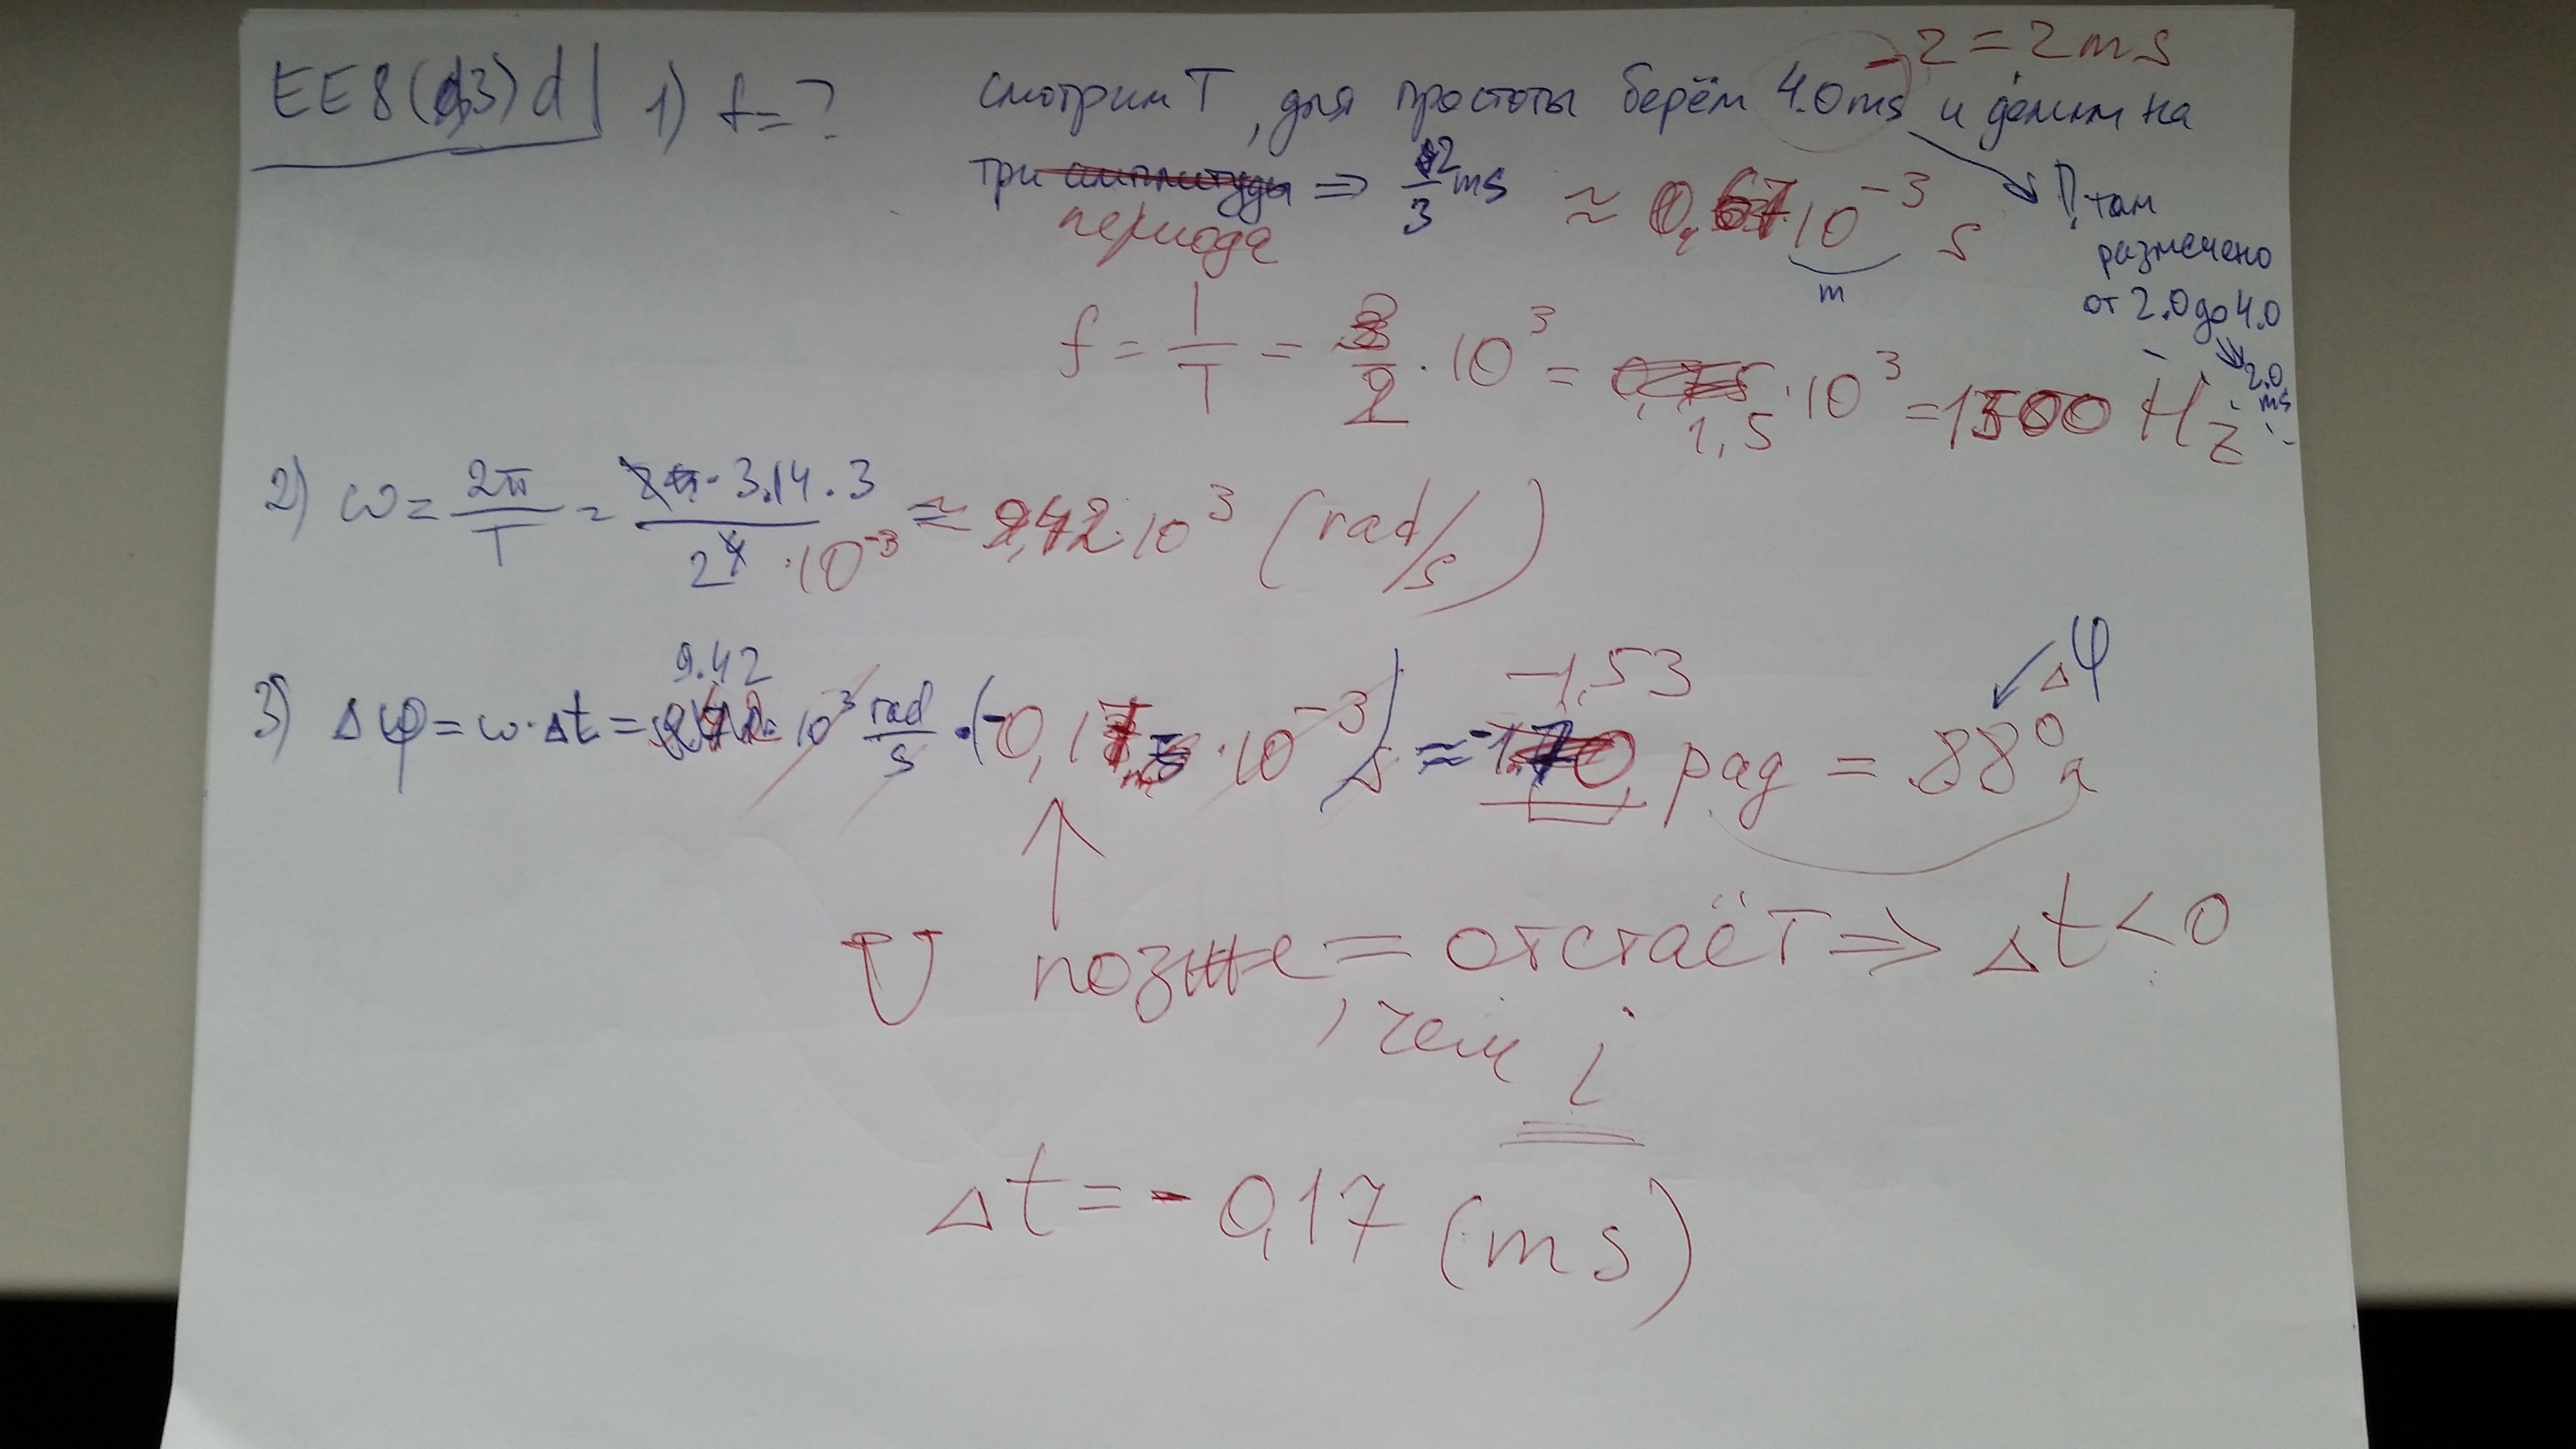 - 2 = 2 ms
EE8(d3)d 1) f = ? смотрим T, для простоты берём 4.0 ms и делим на
три амплитуды ⇒ 2/3 ms ≈ 0,67·10⁻³ s
периода
m
!! там
размечено
от 2.0 до 4.0
2.0 ms
f = 1/T = 3/2 · 10³ = 0,75 1,5 · 10³ = 1500 Hz
2) ω = 2π/T = 2π · 3.14 · 3 / 2 4 · 10⁻³ ≈ 9,42 · 10³ (rad/s)
9.42
3) Δφ = ω · Δt = 10³ rad/s · (-0,17 · 10⁻³) s ≈ -1,53 рад = 88°
Δφ
U позже = отстаёт ⇒ Δt < 0
, чем i
Δt = - 0,17 (ms)